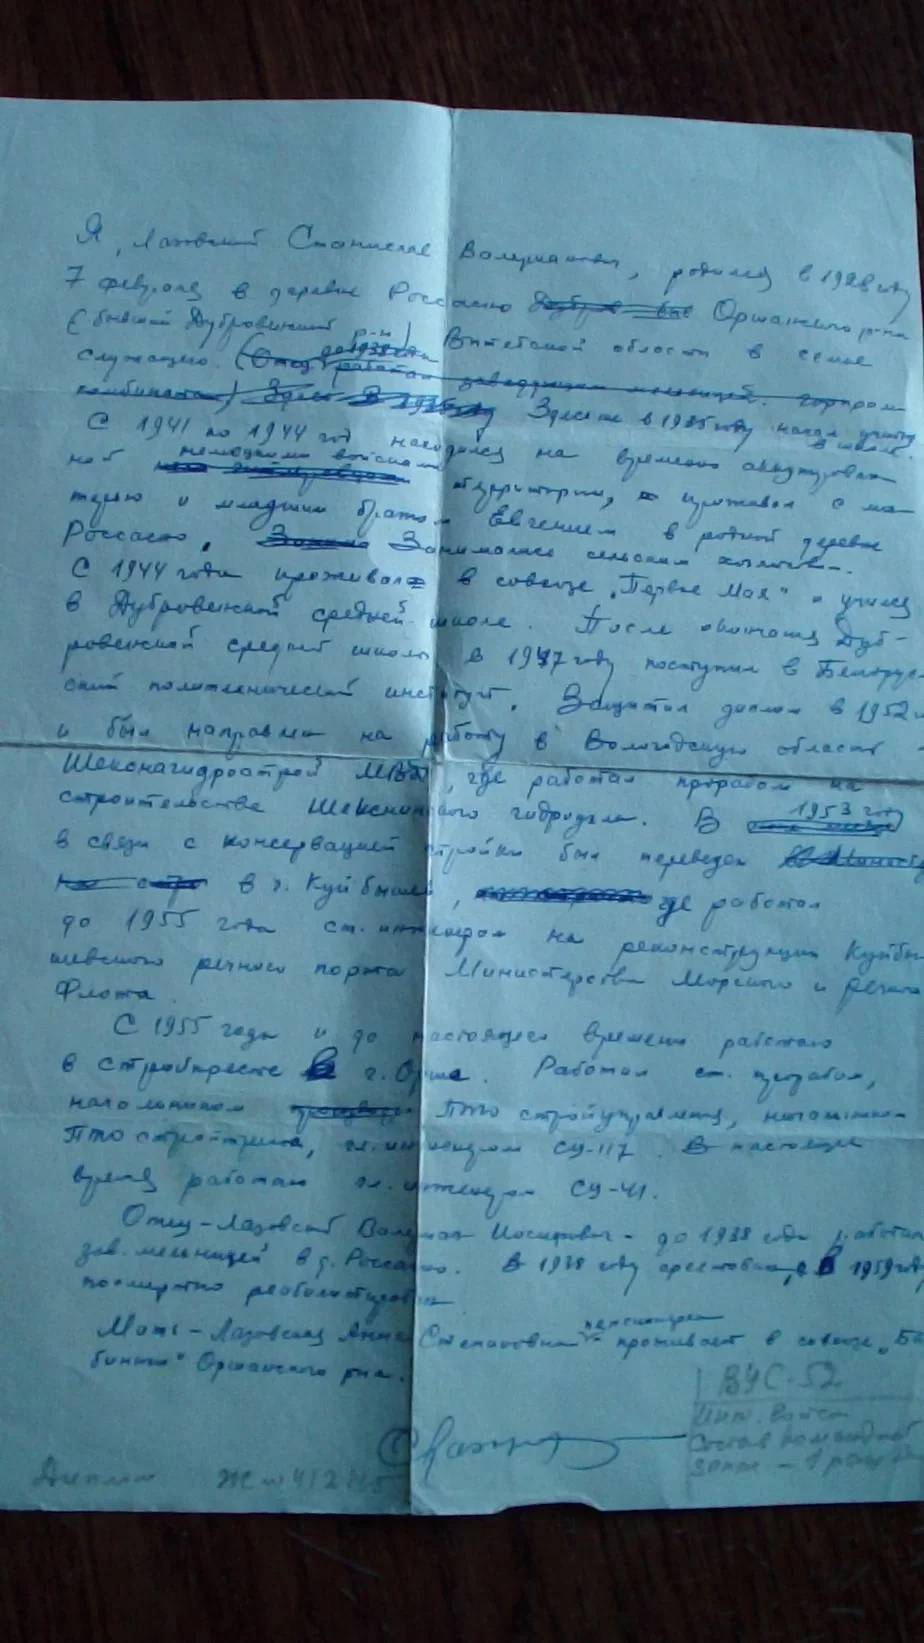 Я, Лазовский Станислав Валерианович, родился в 1928 году
7 февраля в деревне Россасно Оршанского р-на
(бывший Дубровенский р-н) Витебской области в семье
служащего. (Отец до 1938 года работал заведующим мельницей
комбината) Здесь в 1935 году Здесь же в 1935 году начал учебу в школе.
С 1941 по 1944 год находился на временно оккупирован-
ной немецкими войсками территории, проживал с ма-
терью и младшим братом Евгением в родной деревне
Россасно. Занимались сельским хозяйством.
С 1944 года проживал в совхозе "Первое Мая" и учился
в Дубровенской средней школе. После окончания Дуб-
ровенской средней школы в 1947 году поступил в Белорус-
ский политехнический институт. Защитил диплом в 1952
и был направлен на работу в Вологодскую область
Шекснагидрострой МВД, где работал прорабом на
строительстве Шекснинского гидроузла. В 1953 году
в связи с консервацией стройки был переведен
в г. Куйбышев, где работал
до 1955 года ст. инженером на реконструкции Куйбы-
шевского речного порта Министерства Морского и речного
Флота.
С 1955 года и до настоящего времени работаю
в стройтресте г. Орша. Работал ст. прорабом,
начальником ПТО стройуправления, начальником
ПТО стройтреста, гл. инженером СУ-117. В настоящее
время работаю гл. инженером СУ-41.
Отец - Лазовский Валериан Иосифович - до 1938 года работал
зав. мельницей в д. Россасно. В 1938 году арестован, в 1959 году
посмертно реабилитирован
Мать - Лазовская Анна Степановна - пенсионерка проживает в совхозе "Ба-
бинич" Оршанского р-на.
ВУС-52
Инж. войск
Состав командный
Запас - 1 разряд
Диплом Ж №